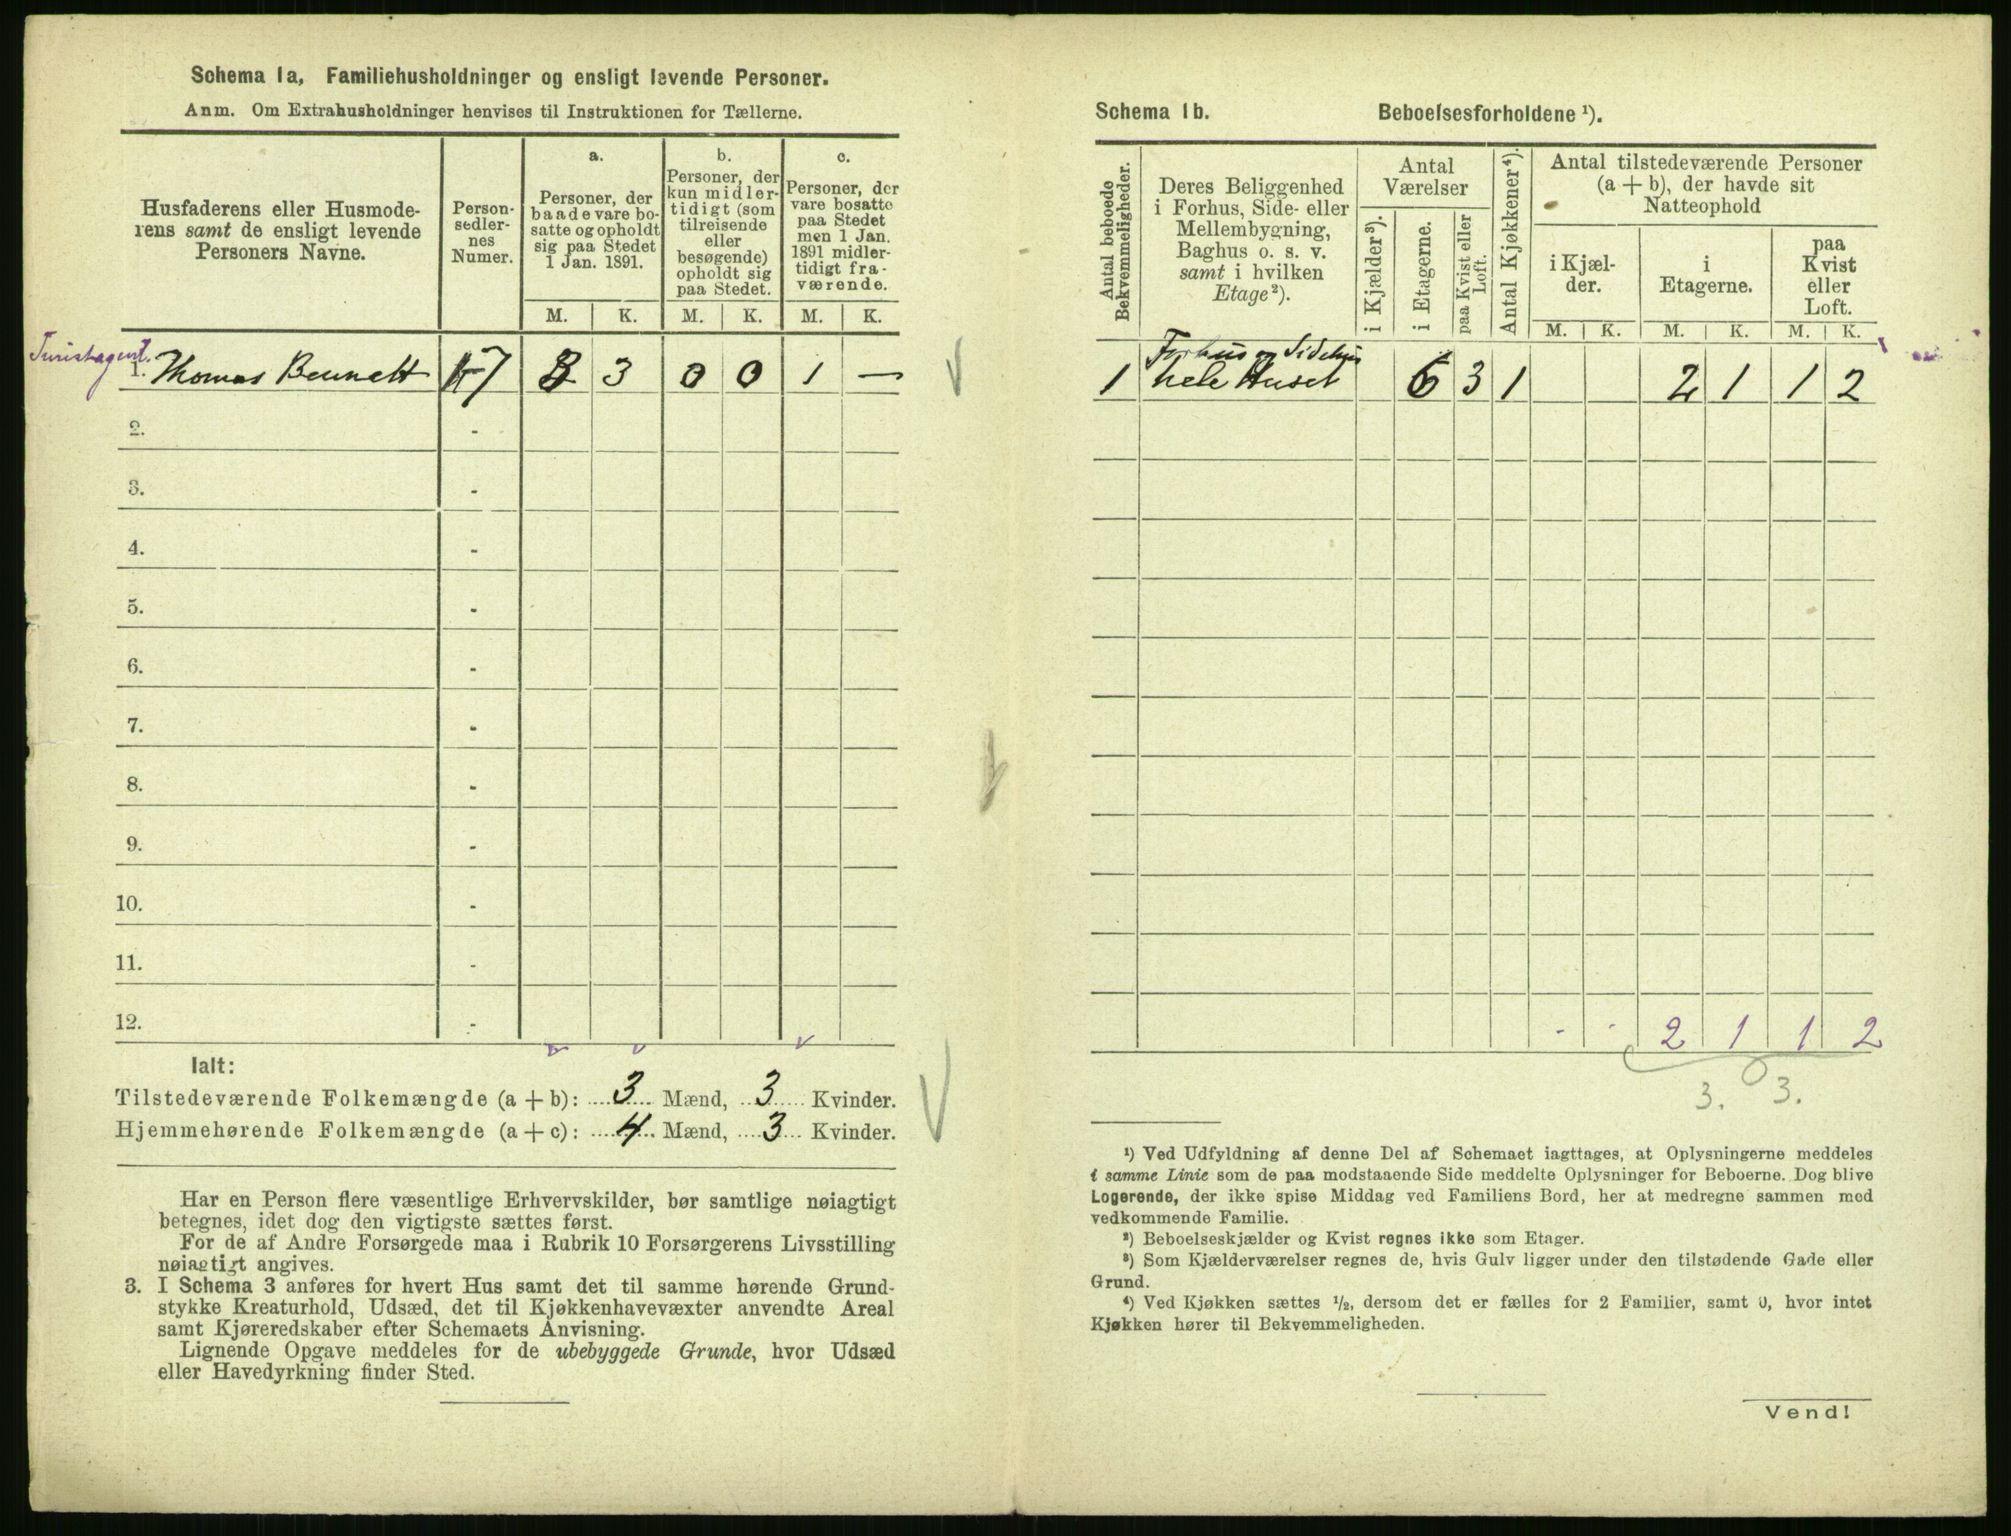 Schema 1a, Familiehusholdninger og ensligt levende Personer.
Anm. Om Extrahusholdninger henvises til Instruktionen for Tællerne.
Husfaderens eller Husmode-
rens samt de ensligt levende
Personers Navne.
Person-
sedler-
nes
Numer.
a.
Personer, der
baade vare bo-
satte og opholdt
sig paa Stedet
1 Jan. 1891.
b.
Personer, der
kun midler-
tidigt (som
tilreisende
eller
besøgende)
opholdt sig
paa Stedet.
c.
Personer, der
vare bosatte
paa Stedet
men 1 Jan.
1891 midler-
tidigt fra-
værende.
M. K. M. K. M. K.
Turistagent.
1. Thomas Bennett 1-7 3 3 0 0 1 —
2. -
3. -
4. -
5. -
6. -
7. -
8. -
9. -
10. -
11. -
12. -
Ialt:
Tilstedeværende Folkemængde (a + b): 3 Mænd, 3 Kvinder.
Hjemmehørende Folkemængde (a + c): 4 Mænd, 3 Kvinder.
Har en Person flere væsentlige Erhvervskilder, bør samtlige nøiagtigt
betegnes, idet dog den vigtigste sættes først.
For de af Andre Forsørgede maa i Rubrik 10 Forsørgerens Livsstilling
nøiagtigt angives.
3. I Schema 3 anføres for hvert Hus samt det til samme hørende Grund-
stykke Kreaturhold, Udsæd, det til Kjøkkenhavevæxter anvendte Areal
samt Kjøreredskaber efter Schemaets Anvisning.
Lignende Opgave meddeles for de ubebyggede Grunde, hvor Udsæd
eller Havedyrkning finder Sted.
Schema 1b. Beboelsesforholdene ¹).
Antal beboede
Bekvemmeligheder.
Deres Beliggenhed
i Forhus, Side- eller
Mellembygning,
Baghus o. s. v.
samt i hvilken
Etage²).
Antal
Værelser
i Kjælder³).
i Etagerne.
paa Kvist eller
Loft.
Antal Kjøkkener⁴).
Antal tilstedeværende Personer
(a + b), der havde sit
Natteophold
i Kjæl-
der.
i
Etagerne.
paa
Kvist
eller
Loft.
M. K. M. K. M. K.
Forhus og Sidehus
1 hele Huset 6 3 1 2 1 1 2
- - 2 1 1 2
3. 3.
¹) Ved Udfyldning af denne Del af Schemaet iagttages, at Oplysningerne meddeles
i samme Linie som de paa modstaaende Side meddelte Oplysninger for Beboerne. Dog blive
Logerende, der ikke spise Middag ved Familiens Bord, her at medregne sammen med
vedkommende Familie.
²) Beboelseskjælder og Kvist regnes ikke som Etager.
³) Som Kjælderværelser regnes de, hvis Gulv ligger under den tilstødende Gade eller
Grund.
⁴) Ved Kjøkken sættes ½, dersom det er fælles for 2 Familier, samt 0, hvor intet
Kjøkken hører til Bekvemmeligheden.
Vend!